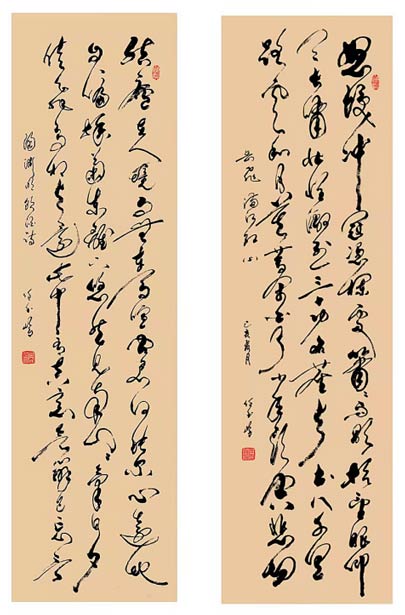 怒髮冲冠凭栏处潇潇雨歇抬望眼仰
天长啸壮怀激烈三十功名尘与土八千里
路云和月莫等闲白了少年头空悲切
岳飛满江红
结庐在人境而无车马喧问君何能尔心远地
自偏采菊东篱下悠然见南山山气日夕
佳飞鸟相与还此中有真意欲辨已忘言
陶渊明饮酒诗